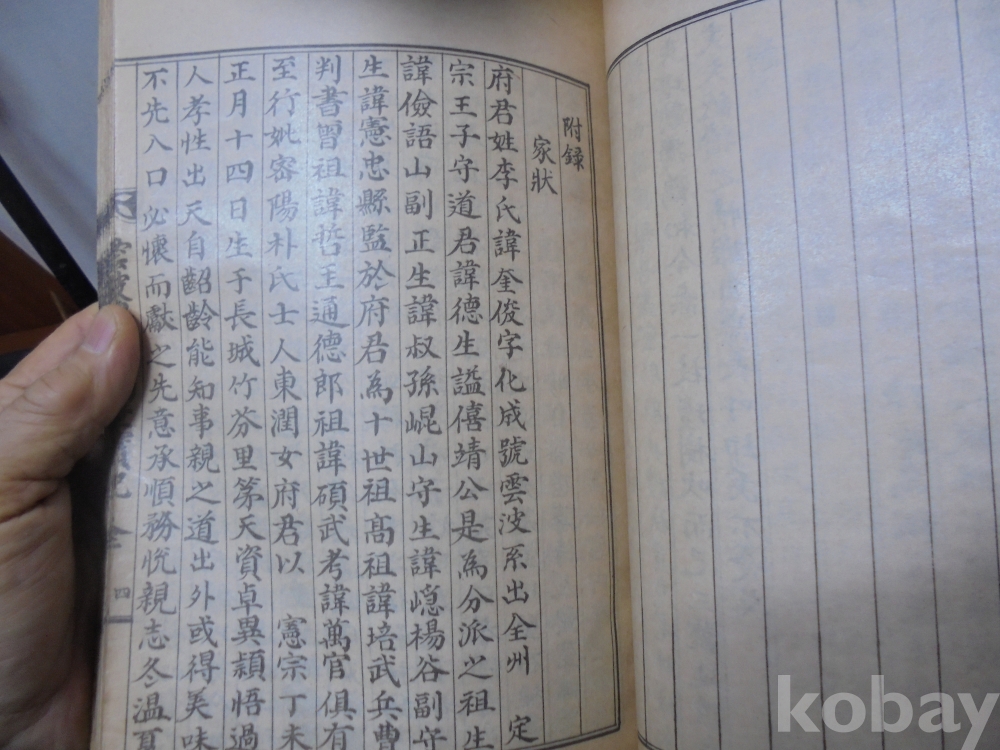 附錄
家狀
府君姓李氏諱奎俊字化成號雲波系出全州 定
宗王子守道君諱德生謚僖靖公是為分派之祖生
諱儉語山副正生諱叔孫崐山守生諱嶾楊谷副守
生諱憲忠縣監於府君為十世祖高祖諱培武兵曹
判書曾祖諱哲王通德郎祖諱碩武考諱萬官俱有
至行妣密陽朴氏士人東潤女府君以 憲宗丁未
正月十四日生于長城竹芬里第天資卓異穎悟過
人孝性出天自齠齡能知事親之道出外或得美味
不先入口必懷而獻之先意承順務悅親志冬溫夏
雲波 實記 全 四
kobay